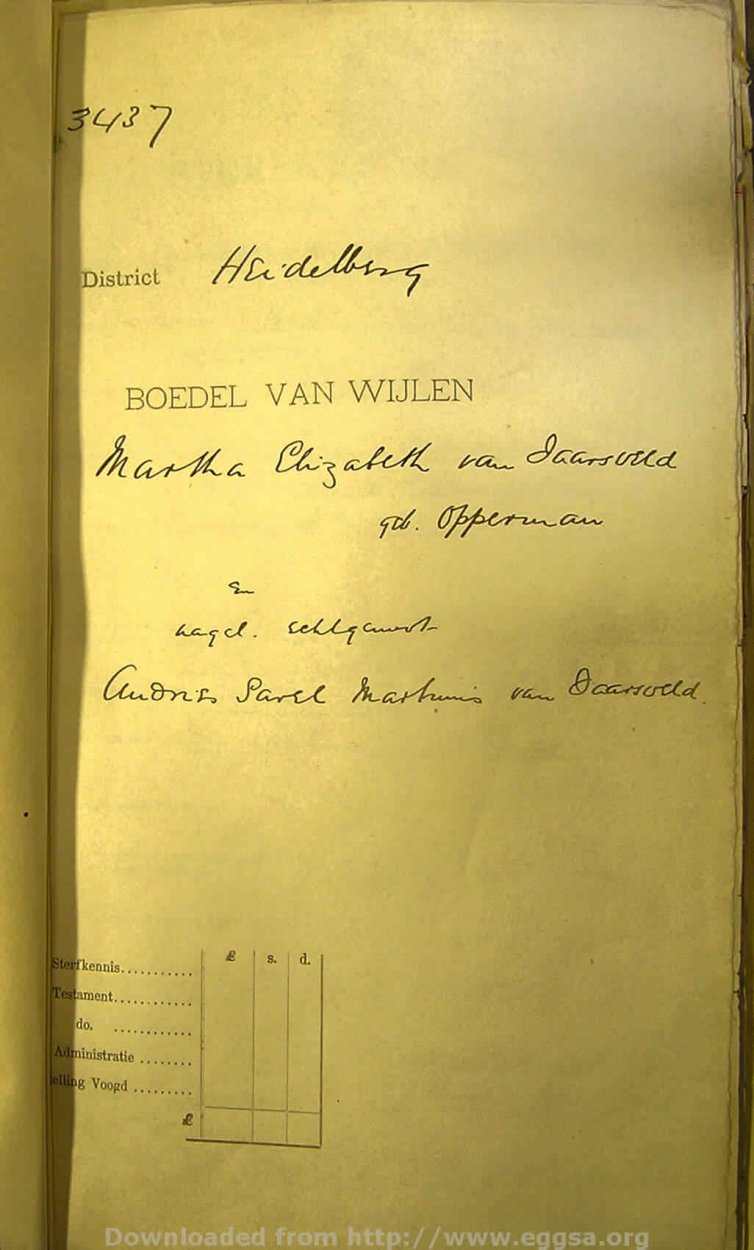 3437
District Heidelberg
BOEDEL VAN WIJLEN
Martha Elizabeth van Jaarsveld
geb. Opperman
En
nagel. echtgenoot
Andries Sarel Marthinus van Jaarsveld.
£ s. d.
Sterfkennis...........
Testament............
do. ............
Administratie ........
elling Voogd .........
£
Downloaded from http://www.eggsa.org